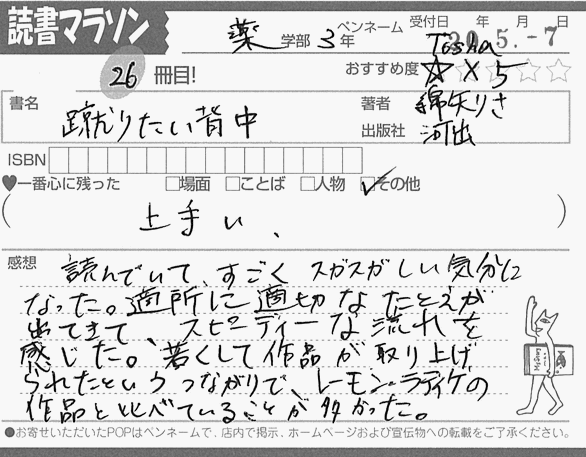 読書マラソン
薬 学部 3 年 ペンネーム Tosha 受付日 年 月 日
20.5.-7
26 冊目! おすすめ度 ☆×5
書名 蹴りたい背中
著者 綿矢りさ
出版社 河出
ISBN
♥一番心に残った □場面 □ことば □人物 ☑その他
( 上手い、 )
感想 読んでいて、すごくスガスガしい気分に
なった。適所に適切なたとえが
出てきて、スピーディーな流れを
感じた。若くして作品が取り上げ
られたというつながりで、レーモン・ラディゲの
作品と比べていることが多かった。
●お寄せいただいたPOPはペンネームで、店内で掲示、ホームページおよび宣伝物への転載をご了承ください。